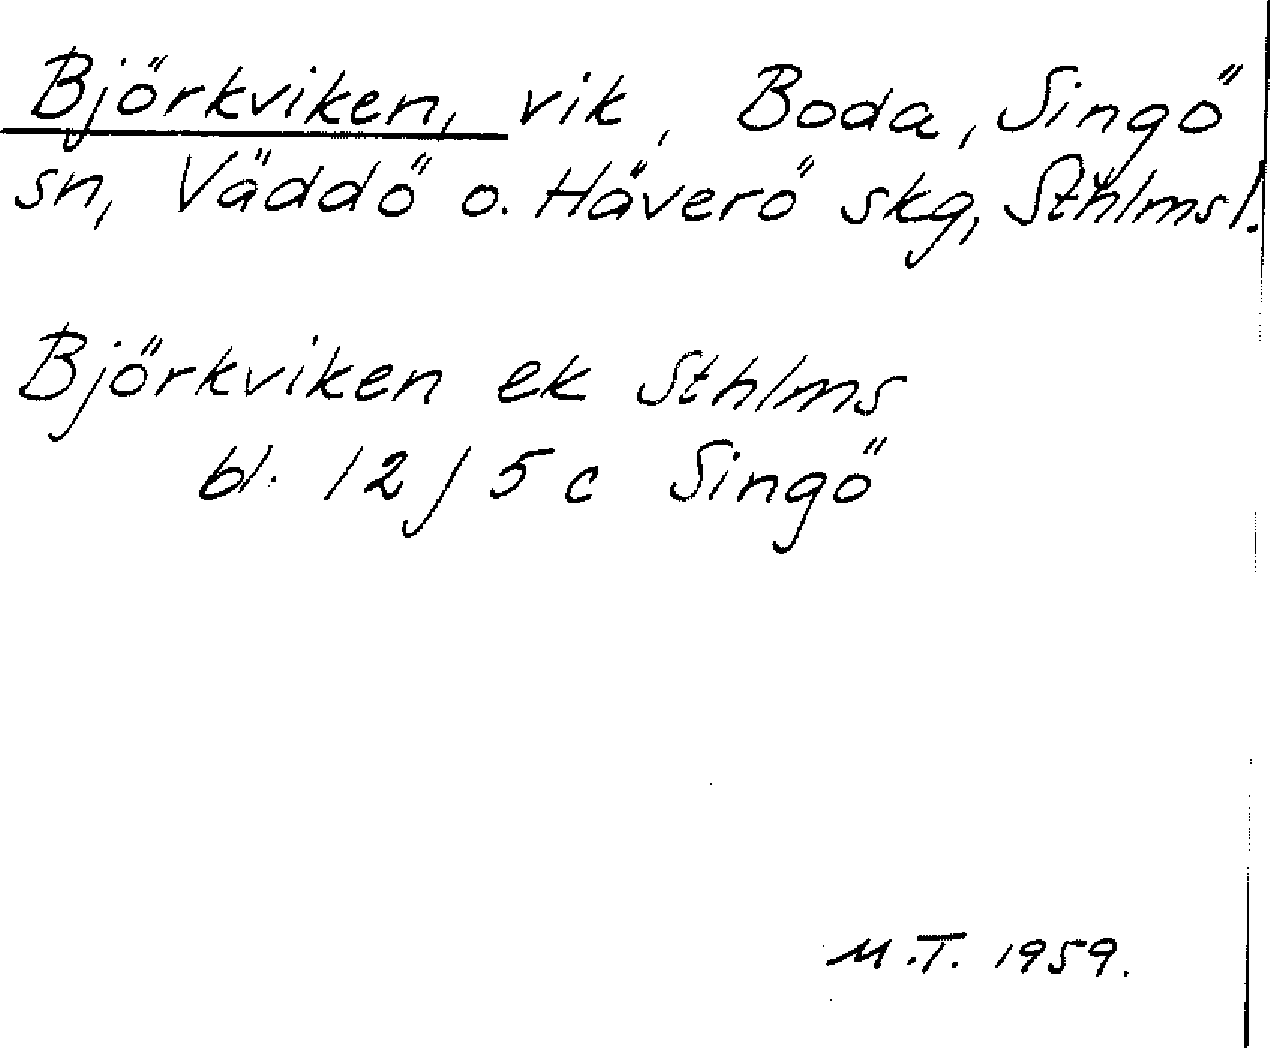 Björkviken, vik, Boda, Singö
sn, Väddö o. Häverö skg, Sthlms l.
Björkviken ek Sthlms
bl. 12 J 5 c Singö
M.T. 1959.